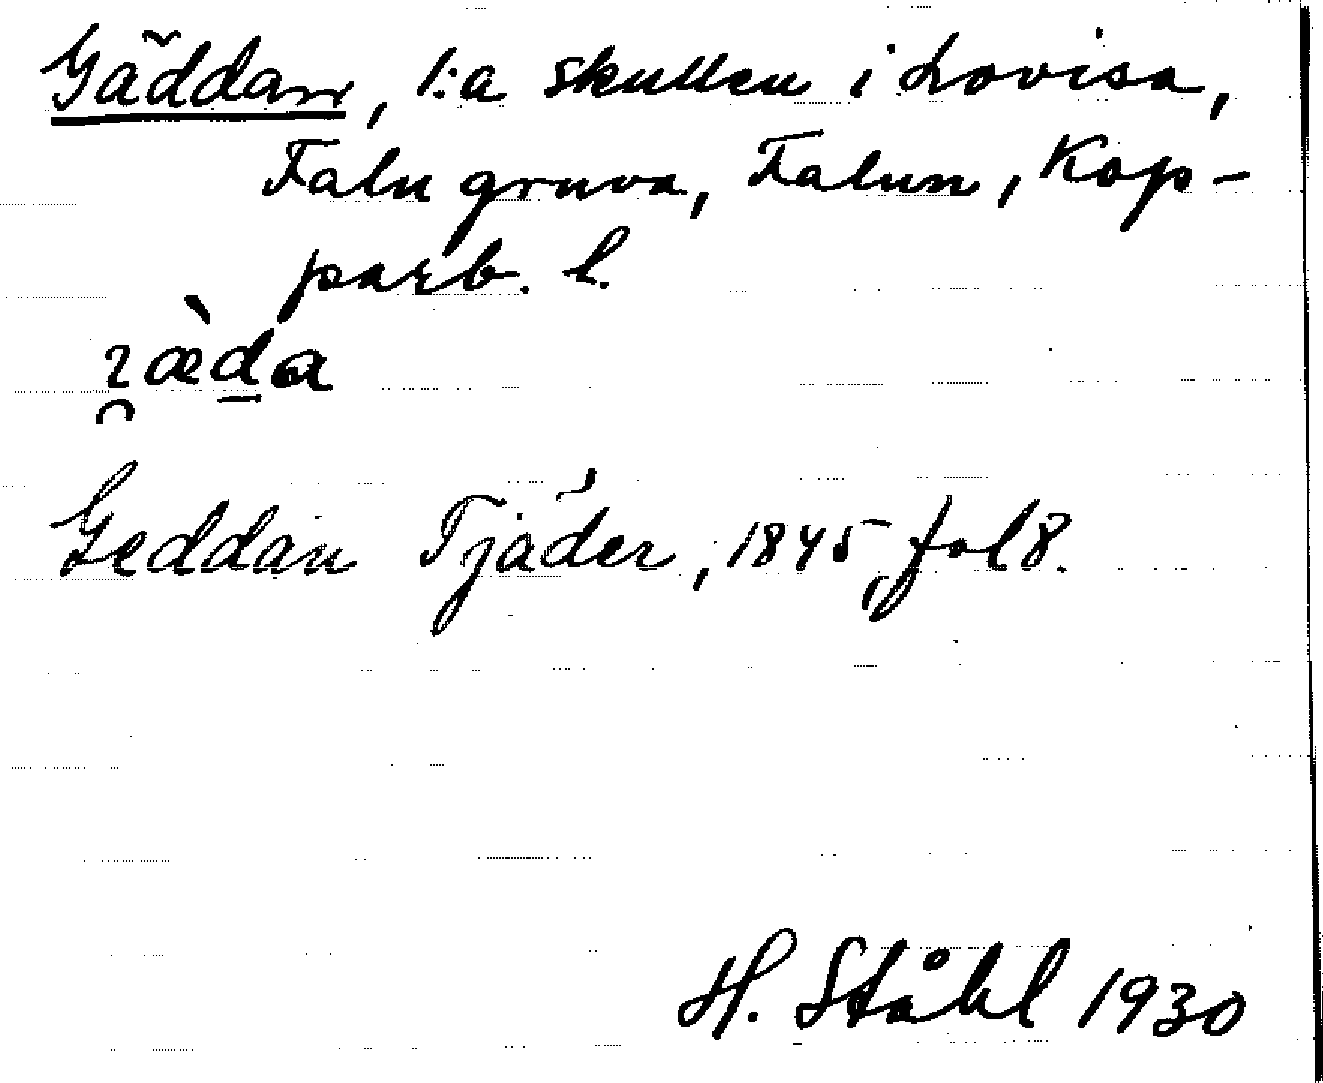 Gäddan, 1:a skullen i Lovisa,
Falu gruva, Falun, Kop-
parb. l.
Geddan Tjäder, 1845, fol 8.
H. Ståhl 1930